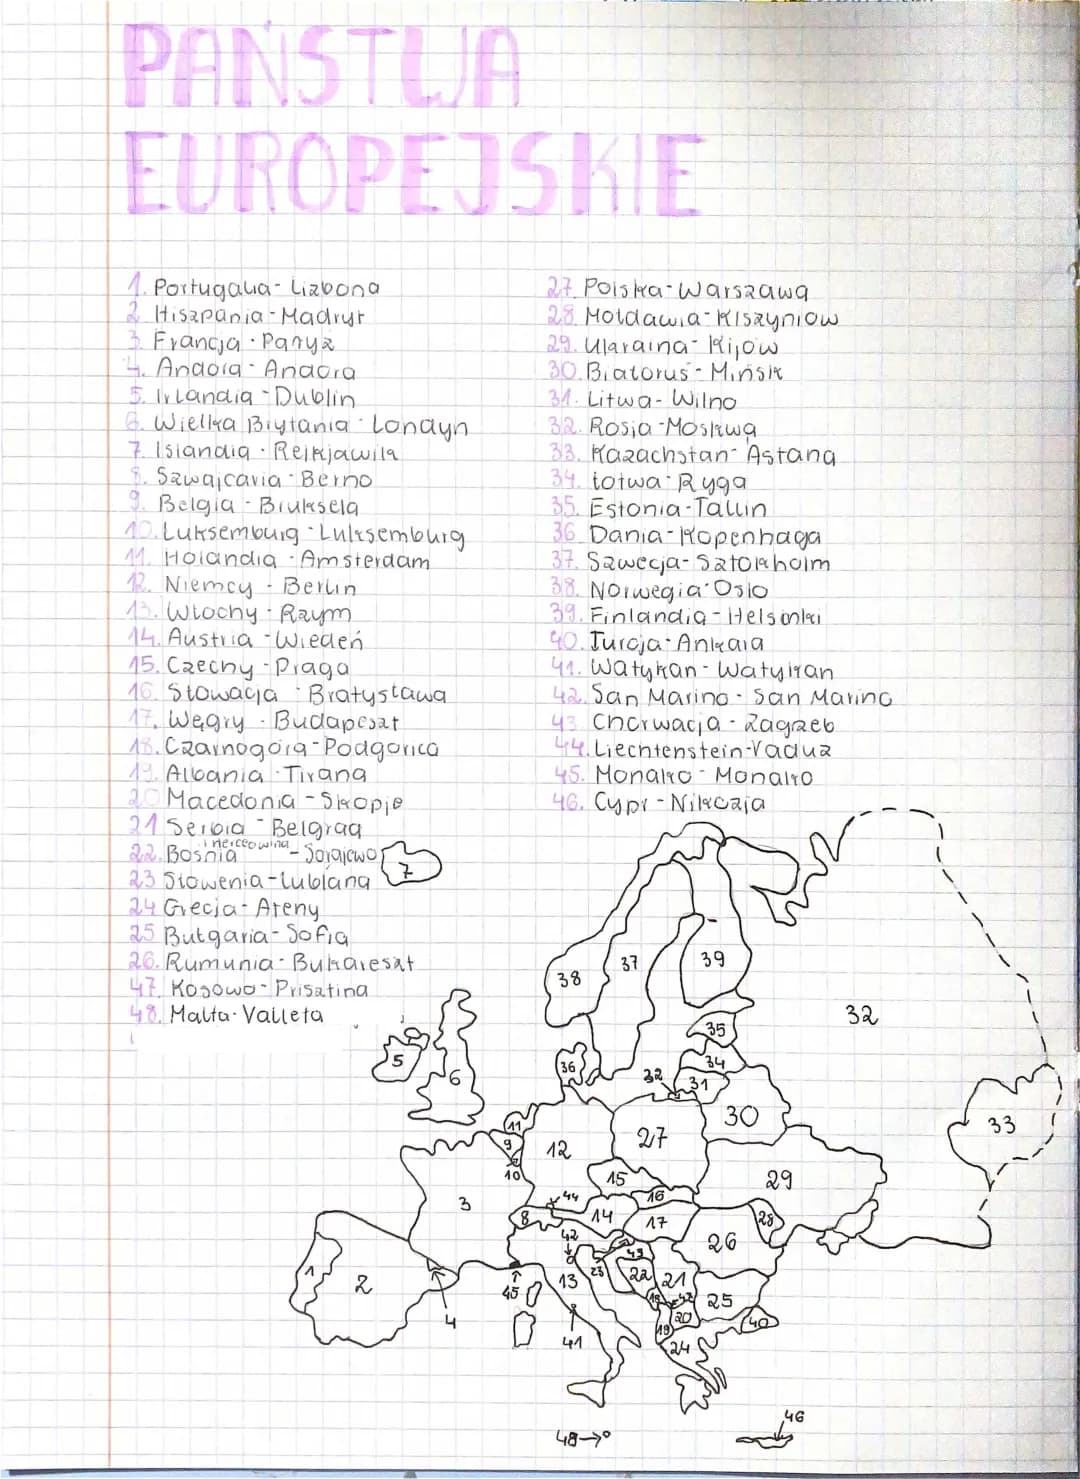 PAŃSTWA
EUROPEJSKIE
1. Portugalia - Lizbona
2. Hiszpania - Madryt
3. Francja - Paryż
4. Andora - Andora
5. Irlandia - Dublin
6. Wielka Brytania - Londyn
7. Islandia - Reikjawik
8. Szwajcaria - Berno
9. Belgia - Bruksela
10. Luksemburg - Luksemburg
11. Holandia - Amsterdam
12. Niemcy - Berlin
13. Włochy - Rzym
14. Austria - Wiedeń
15. Czechy - Praga
16. Słowacja - Bratysława
17. Węgry - Budapeszt
18. Czarnogóra - Podgorica
19. Albania - Tirana
20 Macedonia - Skopje
21 Serbia - Belgrad
22. Bośnia i Hercegowina - Sarajewo
23 Słowenia - Lublana
24 Grecja - Ateny
25 Bułgaria - Sofia
26. Rumunia - Bukareszt
47. Kosowo - Prisztina
48. Malta - Valleta
27. Polska - Warszawa
28. Mołdawia - Kiszyniów
29. Ukraina - Kijów
30. Białoruś - Mińsk
31. Litwa - Wilno
32. Rosja - Moskwa
33. Kazachstan - Astana
34. Łotwa - Ryga
35. Estonia - Tallin
36 Dania - Kopenhaga
37. Szwecja - Sztokholm
38. Norwegia - Oslo
39. Finlandia - Helsinki
40. Turcja - Ankara
41. Watykan - Watykan
42. San Marino - San Marino
43 Chorwacja - Zagrzeb
44. Liechtenstein - Vaduz
45. Monako - Monako
46. Cypr - Nikozja
7
38
37
39
32
35
34
5
6
36
32
31
30
33
11
9
10
12
27
29
15
16
44
3
8
14
17
28
26
42
43
23
22
21
1
2
4
45
13
18
47
25
20
19
40
41
24
46
48